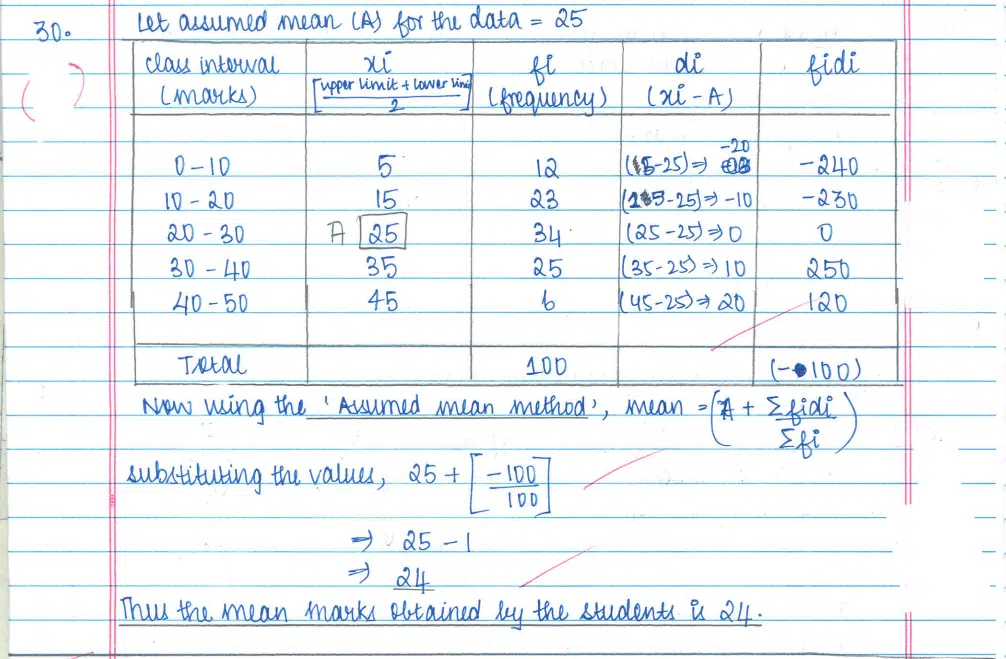 30. Let assumed mean (A) for the data = 25
class interval (marks) xi [upper limit + lower limit / 2] fi (frequency) di (xi - A) fidi
0-10 5 12 (5-25)⇒ -20 -240
10-20 15 23 (15-25)⇒ -10 -230
20-30 A 25 34 (25-25)⇒ 0 0
30-40 35 25 (35-25)⇒ 10 250
40-50 45 6 (45-25)⇒ 20 120
Total 100 (-100)
Now using the 'Assumed mean method', mean = (A + Σfidi / Σfi)
substituting the values, 25 + [-100 / 100]
⇒ 25 - 1
⇒ 24
Thus the mean marks obtained by the students is 24.